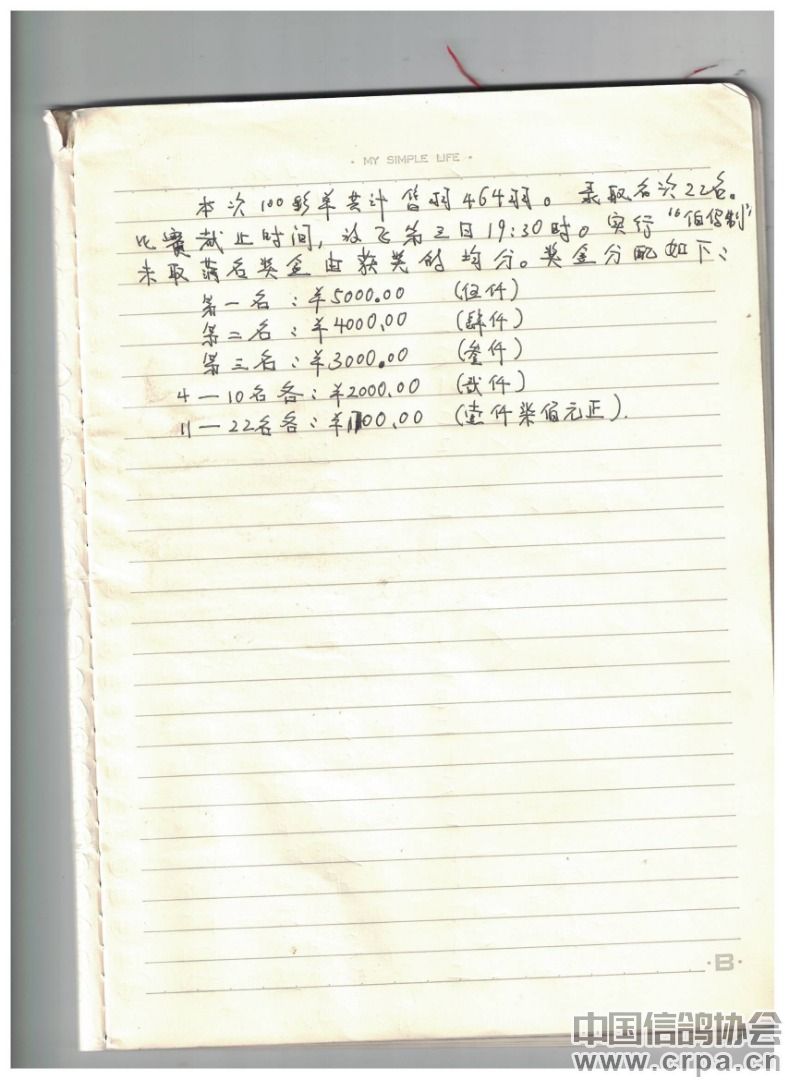 · MY SIMPLE LIFE ·
本次100彩羊共计 皆羽464羽。 录取名次22名。
比赛截止时间,放飞第三日19:30时。实行"伯馆制"
未取满名奖金由获奖的均分。奖金分配如下:
第一名:¥5000.00 (伍仟)
第二名:¥4000.00 (肆仟)
第三名:¥3000.00 (叁仟)
4—10名各:¥2000.00 (贰仟)
11—22名各:¥1700.00 (壹仟柒佰元正).
·B·
中国信鸽协会
www.crpa.cn